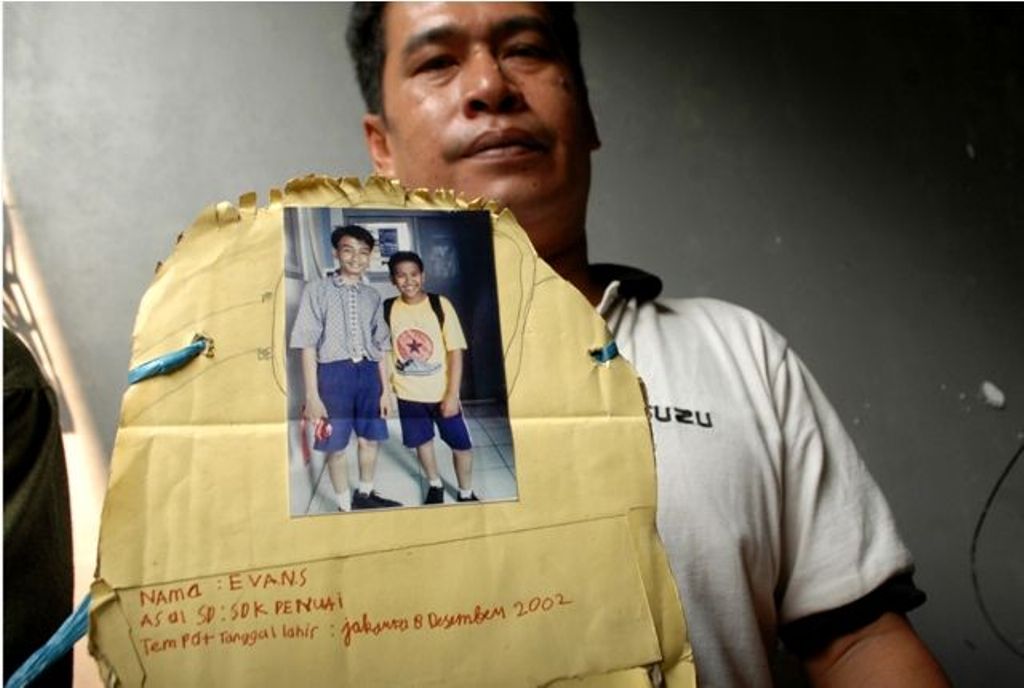 UZU
NAMA : EVANS
ASAl SD : SDK PENUAI
TEMPAt Tanggal lahir : jakarta 8 Desember 2002